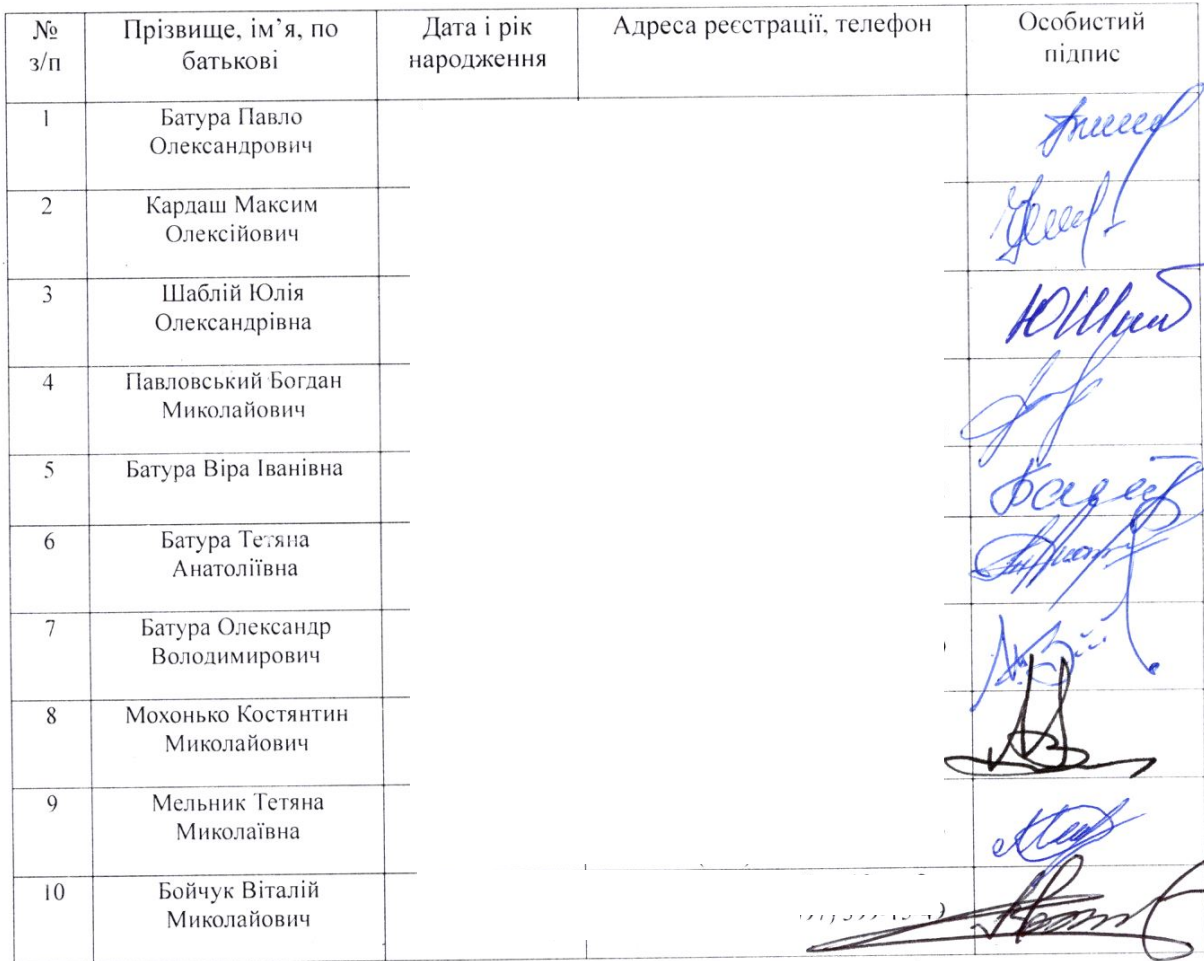 № з/п Прізвище, ім’я, по батькові Дата і рік народження Адреса реєстрації, телефон Особистий підпис
1 Батура Павло
Олександрович
2 Кардаш Максим
Олексійович
3 Шаблій Юлія
Олександрівна
4 Павловський Богдан
Миколайович
5 Батура Віра Іванівна
6 Батура Тетяна
Анатоліївна
7 Батура Олександр
Володимирович
8 Мохонько Костянтин
Миколайович
9 Мельник Тетяна
Миколаївна
10 Бойчук Віталій
Миколайович